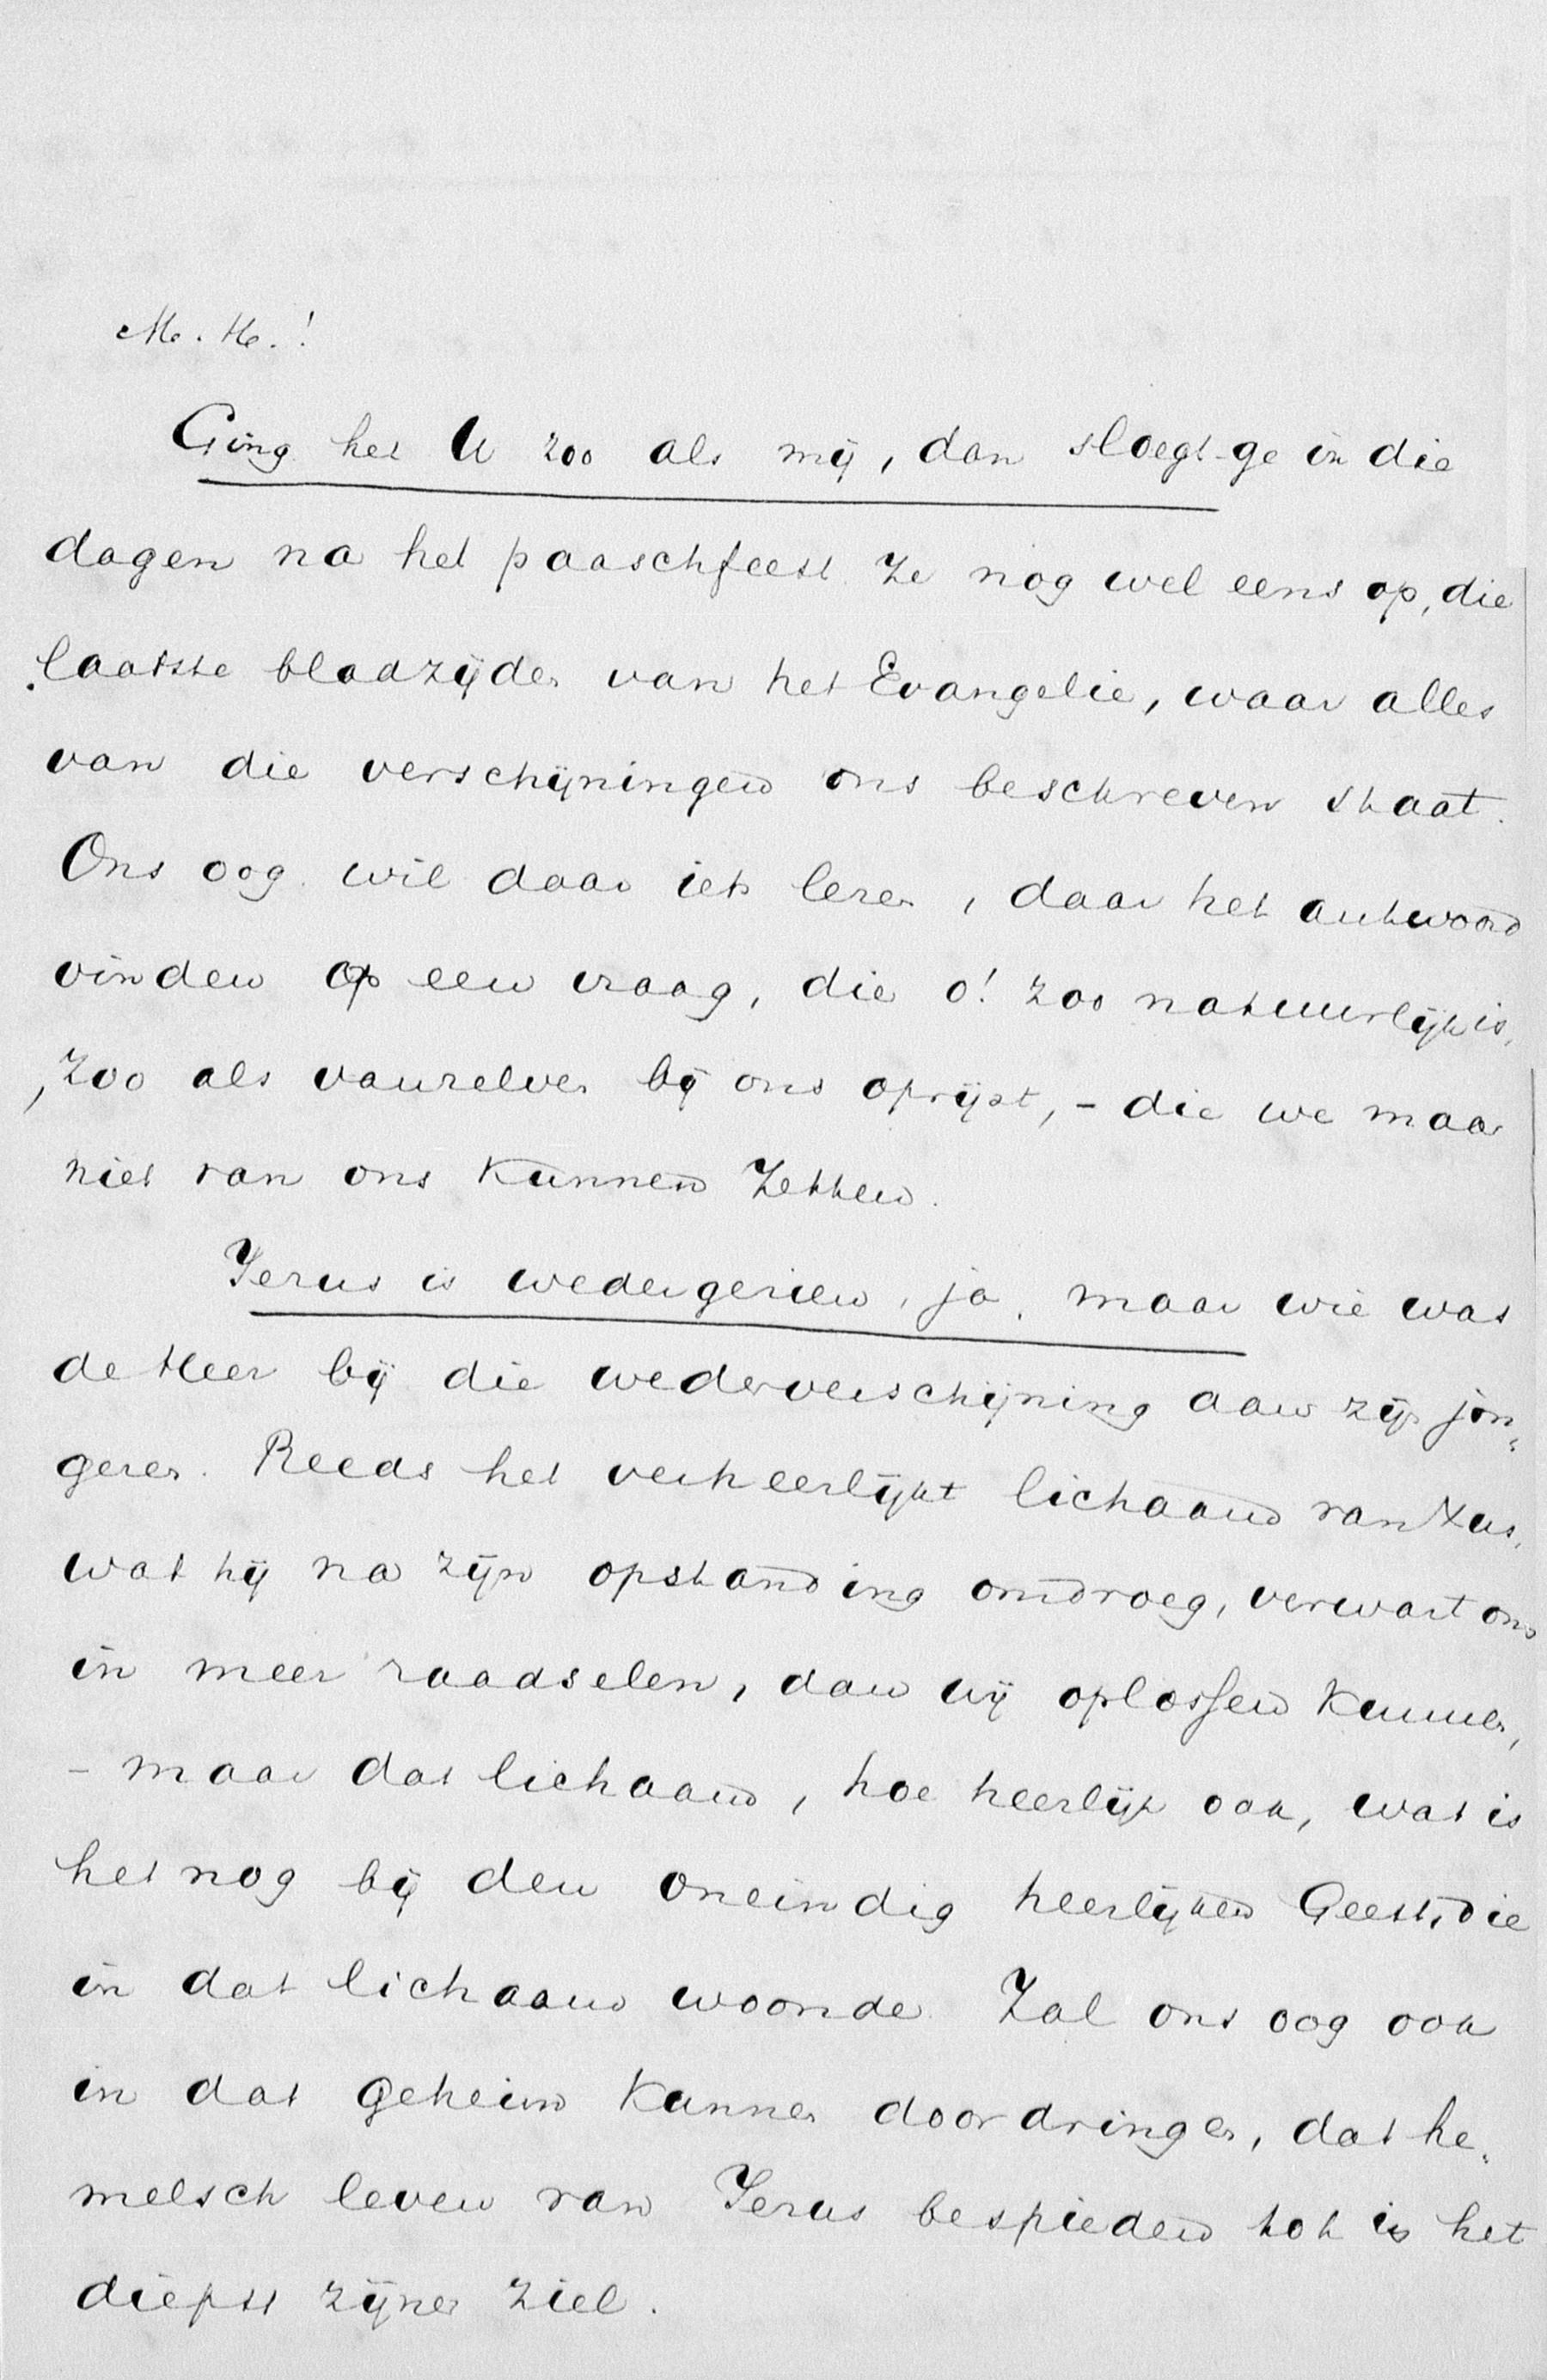 M. H.!
Ging het U zoo als mij, dan sloegt ge in die
dagen na het paaschfeest ze nog wel eens op, die
laatste bladzijden van het Evangelie, waar alles
van die verschijningen ons beschreven staat.
Ons oog wil daar iets lezen, daar het antwoord
vinden op een vraag, die o! zoo natuurlijk is,
zoo als vanzelven bij ons oprijst, - die we maar
niet van ons kunnen zetten.
Jezus is wedergezien, ja, maar wie was
de Heer bij die wederverschijning aan zijn jon„
geren. Reeds het verheerlijkt lichaam van Xus,
wat hij na zijn opstanding omdroeg, verwart ons
in meer raadselen, dan wij oplossen kunnen,
- maar dat lichaam, hoe heerlijk ook, wat is
het nog bij den oneindig heerlijken Geest, die
in dat lichaam woonde. Zal ons oog ook
in dat geheim kunnen doordringen, dat he„
melsch leven van Jezus bespieden tot in het
diepst zijner ziel.